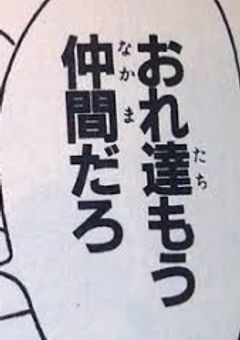 おれ達もう
仲間だろ